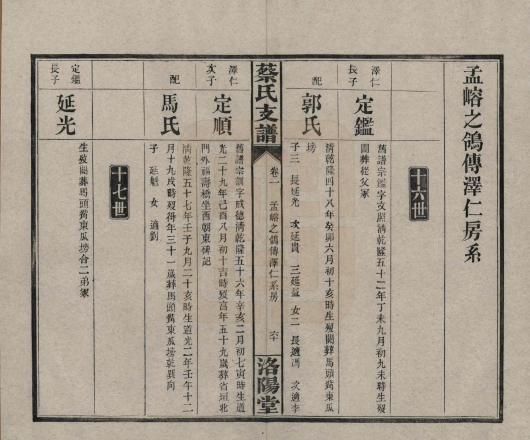 孟嵱之鴿傳澤仁房系
十六世
澤仁
長子
定鑑
舊譜宗鑑字文殿清乾隆五十二年丁未九月初九未時生歿
闕葬從父冢
配
郭氏
清乾隆四十八年癸卯六月初十亥時生歿闕葬馬頭嵴東瓜
塝
子三 長延光 次延貴 三延魁 女二 長適馮 次適李
蔡氏支譜
卷一
孟嵱之鴿傳澤仁系房
六十
洛陽堂
澤仁
次子
定順
舊譜宗訓字咸德清乾隆五十六年辛亥二月初七寅時生道
光二十九年己酉八月初十吉時歿享年五十九歲葬省垣北
門外福壽橋坐西朝東碑記
配
馬氏
清乾隆五十七年壬子九月二十亥時生道光二年壬午十二
月十九戌時歿得年三十一歲葬馬頭嵴東瓜塝乾巽向
子 延魁 女 適劉
十七世
定鑑
長子
延光
生歿闕葬馬頭嵴東瓜塝合二弟冢